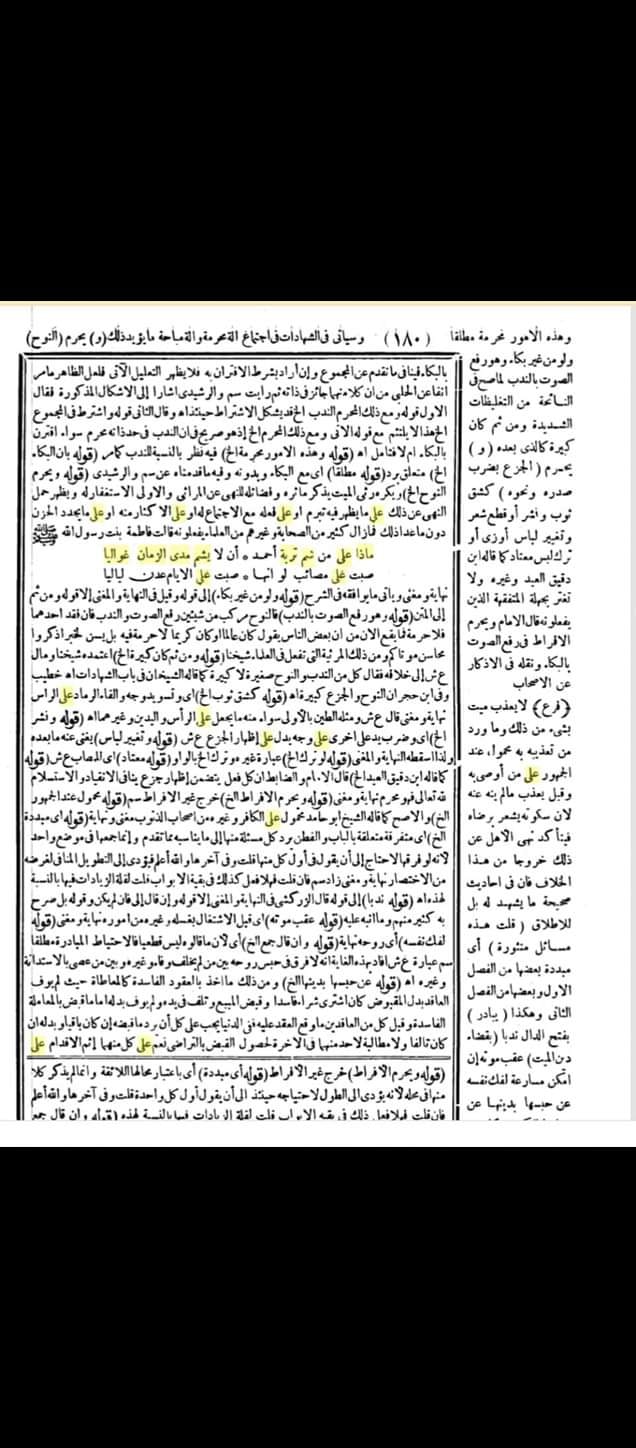 وهذه الأمور محرمة مطلقا (١٨٠) وسيأتى فى الشهادات فى اجتماع آلة محرمة وآلة مباحة ما يؤيد ذلك (و) يحرم (النوح)
ولو من غير بكاء وهو رفع
الصوت بالندب لما صح فى
النائحة من التغليظات
الشديدة ومن ثم كان
كبيرة كالذى بعده (و)
يحرم (الجزع بضرب
صدره ونحوه) كشق
ثوب ونشر أو قطع شعر
وتغيير لباس أو زى أو
ترك لبس معتاد كما قاله ابن
دقيق العيد وغيره ولا
تغتر بجهلة المتفقهة الذين
يفعلونه قال الامام ويحرم
الافراط فى رفع الصوت
بالبكاء ونقله فى الاذكار
عن الاصحاب
(فرع) لا يعذب ميت
بشىء من ذلك وما ورد
من تعذيبه به محمول عند
الجمهور على من أوصى به
وقيل يعذب ما لم ينه عنه
لان سكوته يشعر برضاه
فيتأكد نهى الاهل عن
ذلك خروجا من هذا
الخلاف فان فى احاديث
صحيحة ما يشهد له بل
للاطلاق (قلت هذه
مسائل منثورة) أى
مبددة بعضها من الفصل
الاول وبعضها من الفصل
الثانى وهكذا (يبادر)
بفتح الدال ندبا (بقضاء
دين الميت) عقب موته إن
امكن مسارعة لفك نفسه
عن حبسها بدينها عن
بالبكاء فينافى ما تقدم عن المجموع وإن أراد بشرط الاقتران به فلا يظهر التعليل الآتى فلعل الظاهر ما مر
آنفا عن الحلبى من ان كلا منهما جائز فى ذاته ثم رأيت سم والرشيدى اشارا إلى الاشكال المذكورة فقال
الاول قوله ومع ذلك المحرم الندب الخ قد يشكل الاشتراط حينئذ اه وقال الثانى قوله واشترط فى المجموع
الخ هذا لا يلتئم مع قوله الآتى ومع ذلك المحرم الخ إذ هو صريح فى ان الندب فى حد ذاته محرم سواء اقترن
بالبكاء ام لا فتامل اه (قوله وهذه الامور محرمة الخ) فيه نظر بالنسبة للندب كما مر (قوله بان البكاء
الخ) متعلق برد (قوله مطلقا) اى مع البكاء وبدونه وفيه ما قدمناه عن سم والرشيدى (قوله ويحرم
النوح الخ) ويكره رثى الميت بذكر مآثره وفضائله للنهى عن المراثى والاولى الاستغفار له ويظهر حمل
النهى عن ذلك على ما يظهر فيه تبرم او على فعله مع الاجتماع له او على الاكثار منه او على ما يجدد الحزن
دون ما عدا ذلك فما زال كثير من الصحابة وغيرهم من العلماء يفعلونه قالت فاطمة بنت رسول الله ﷺ
ماذا على من شم تربة أحمد * أن لا يشم مدى الزمان غواليا
صبت على مصائب لو انها * صبت على الايام عدن لياليا
نهاية ومغنى وياتى ما يوافقه فى الشرح (قوله ولو من غير بكاء) إلى قوله وقيل فى النهاية والمغنى إلا قوله ومن ثم
إلى المتن (قوله وهو رفع الصوت بالندب) فالنوح مركب من شيئين رفع الصوت والندب فان فقد احدهما
فلا حرمة فما يقع الان من ان بعض الناس يقول كان عالما او كان كريما لا حرمة فيه بل يسن لخبر اذكروا
محاسن موتاكم ومن ذلك المرثية التى تفعل فى العلماء شيخنا (قوله ومن ثم كان كبيرة الخ) اعتمده شيخنا ومال
ع ش إلى خلافه فقال كل من الندب والنوح صغيرة لا كبيرة كما قاله الشيخان فى باب الشهادات اه خطيب
وفى ابن حجر ان النوح والجزع كبيرة اه (قوله كشق ثوب الخ) اى وتسويد وجه والقاء الرماد على الراس
نهاية ومغنى قال ع ش ومثله الطين بالاولى سواء منه ما يجعل على الرأس واليدين وغيرهما اه (قوله ونشر
الخ) اى وضرب يد على اخرى على وجه يدل على إظهار الجزع ع ش (قوله وتغيير لباس) يغنى عنه ما بعده
ولذا اسقطه النهاية والمغنى (قوله او ترك الخ) عبارة غيره وترك الخ بالواو (قوله معتاد) اى للمصاب ع ش (قوله
كما قاله ابن دقيق العيد الخ) قال الامام والضابط ان كل فعل يتضمن إظهار جزع ينافى الانقياد والاستسلام
لله تعالى فهو محرم نهاية ومغنى (قوله ويحرم الافراط الخ) خرج غير الافراط سم (قوله محمول عند الجمهور
الخ) والاصح كما قاله الشيخ ابو حامد محمول على الكافر وغيره من اصحاب الذنوب مغنى ونهاية (قوله اى مبددة
الخ) اى متفرقة متعلقة بالباب والفطن يرد كل مسئلة منها إلى ما يناسبه مما تقدم وإنما جمعها فى موضع واحد
لانه لو فرقها لاحتاج إلى أن يقول فى أول كل منها قلت وفى آخرها والله أعلم فيؤدى إلى التطويل المنافى لغرضه
من الاختصار نهاية ومغنى زاد سم فان قلت فهلا فعل كذلك فى بقية الابواب قلت لقلة الزيادات فيها بالنسبة
لهذه اه (قوله ندبا) إلى قوله قال الزركشى فى النهاية والمغنى إلا قوله وإن قال إلى فان لم يكن وقوله بل صرح
به كثير منهم وما انبه عليه (قوله عقب موته) اى قبل الاشتغال بغسله وغيره من اموره نهاية ومغنى (قوله
لفك نفسه) اى روحه نهاية (قوله وان قال جمع الخ) اى لان ما قالوه ليس قطعيا فالاحتياط المبادرة مطلقا
سم عبارة ع ش افاد بهذه الغاية انه لا فرق فى حبس روحه بين من لم يخلف وفاء وغيره وبين من عصى بالاستدانة
وغيره اه (قوله عن حبسها بدينها الخ) ومن ذلك ما اخذ بالعقود الفاسدة كالمعاطاة حيث لم يوف
العاقد بدل المقبوض كان اشترى شراء فاسدا وقبض المبيع وتلف فى يده ولم يوف بدله اما ما قبض بالمعاملة
الفاسدة وقبل كل من العاقدين ما وقع العقد عليه فى الدنيا يجب على كل أن رد ما قبضه إن كان باقيا وبدله ان
كان تالفا ولا مطالبة لاحد منهما فى الآخرة لحصول القبض بالتراضى نعم على كل منهما إثم الاقدام على
(قوله ويحرم الافراط) خرج غير الافراط (قوله أى مبددة) أى باعتبار محالها اللائقة وانما لم يذكر كلا
منها فى محله لانه يؤدى الى الطول لاحتياجه حينئذ الى أن يقول أول كل واحدة قلت وفى آخرها والله أعلم
فان قلت فهلا فعل ذلك فى بقية الابواب قلت لقلة الزيادات فيها بالنسبة لهذه (قوله وان قال جمع